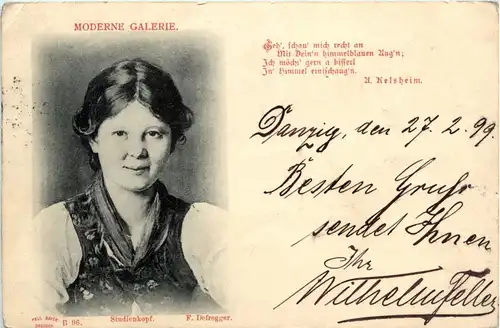 MODERNE GALERIE.
Geh', schau' mich recht an
Mit Dein'n himmelblauen Aug'n;
Ich möch' gern a bisserl
In' Himmel einischaug'n.
A. Kelsheim.
Danzig, den 27. 2. 99.
Besten Gruss
sendet Ihnen
Ihr
Wilhelm Feller
DRESDEN
B 96.
Studienkopf.
F. Defregger.